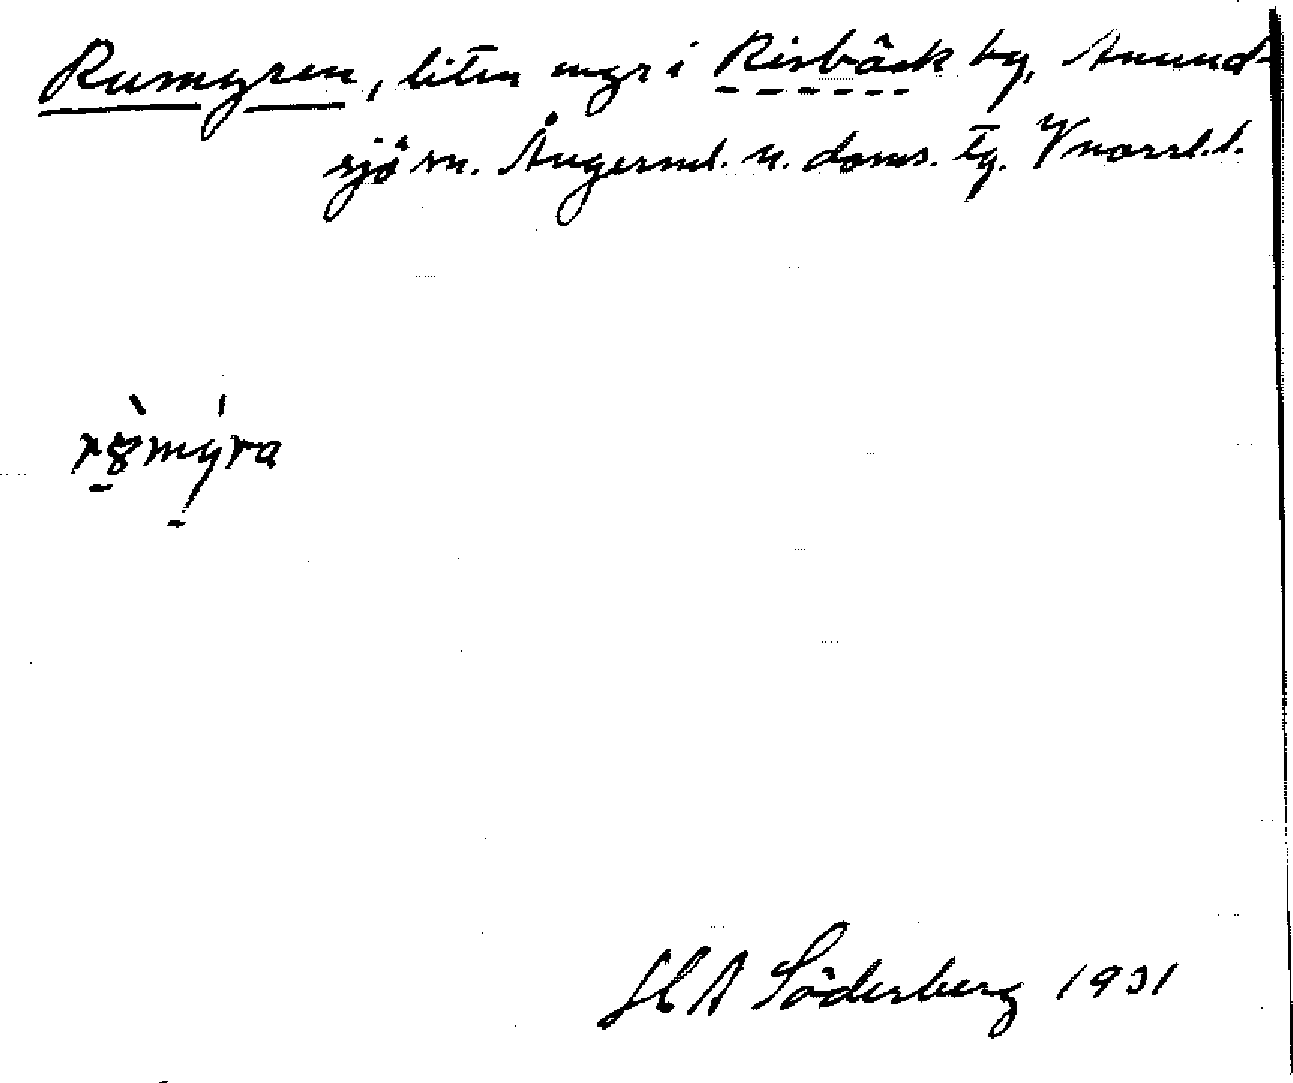 Rumyren, liten myr i Risbäck by, Anund-
sjö sn. Ångerml. n. doms. tg. Vnorrl. l.
H A Söderberg 1931